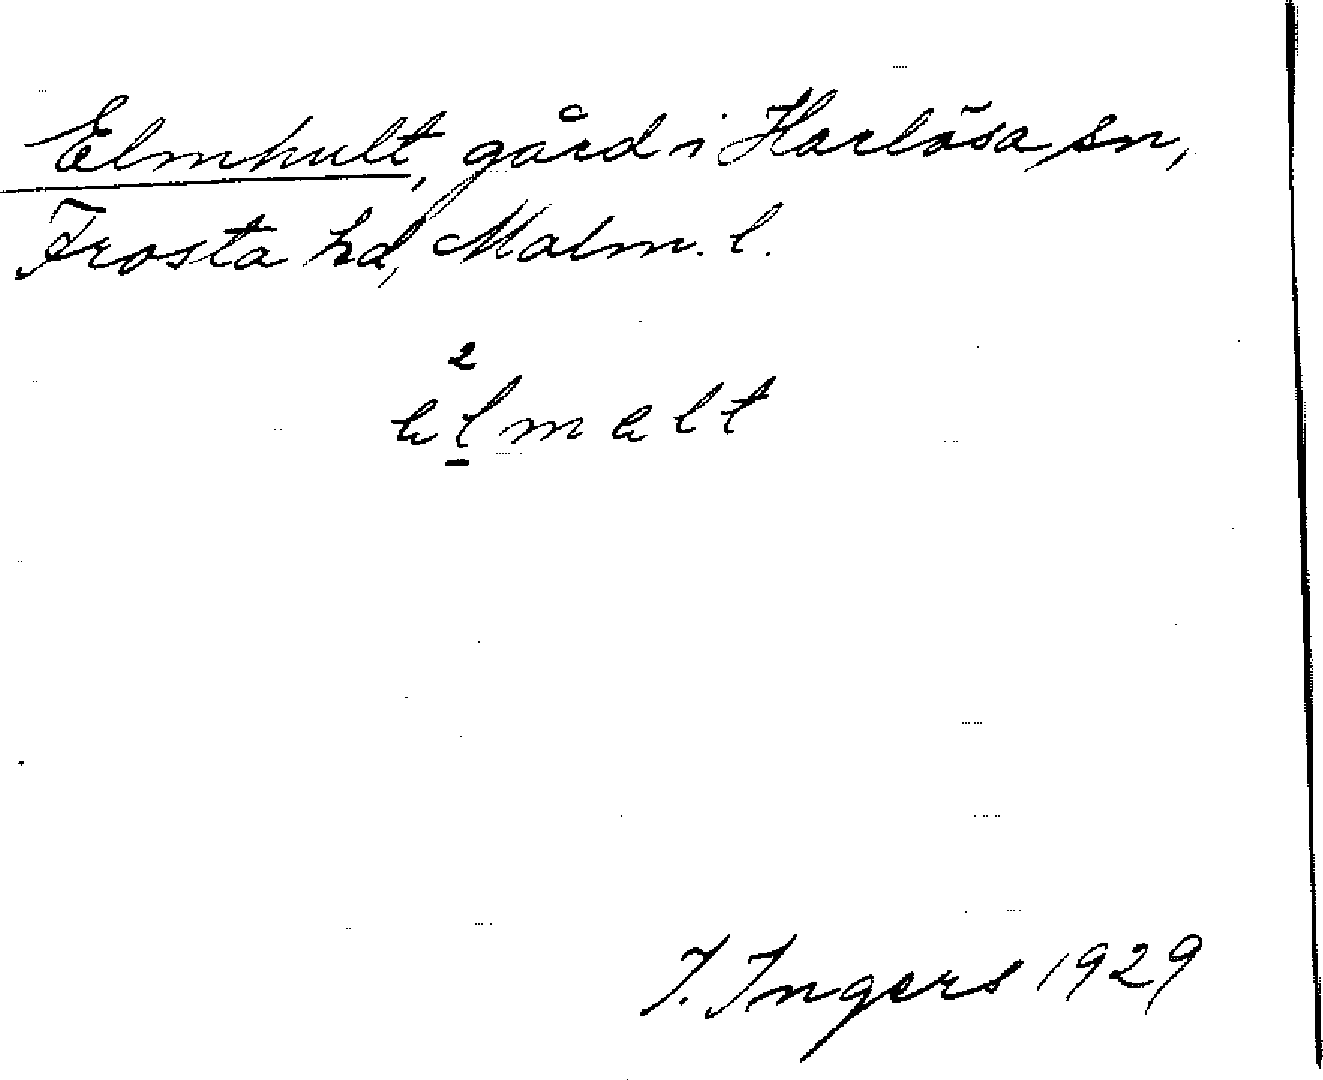 Elmhult, gård i Harlösa sn,
Frosta hd, Malm. l.
I. Ingers 1929